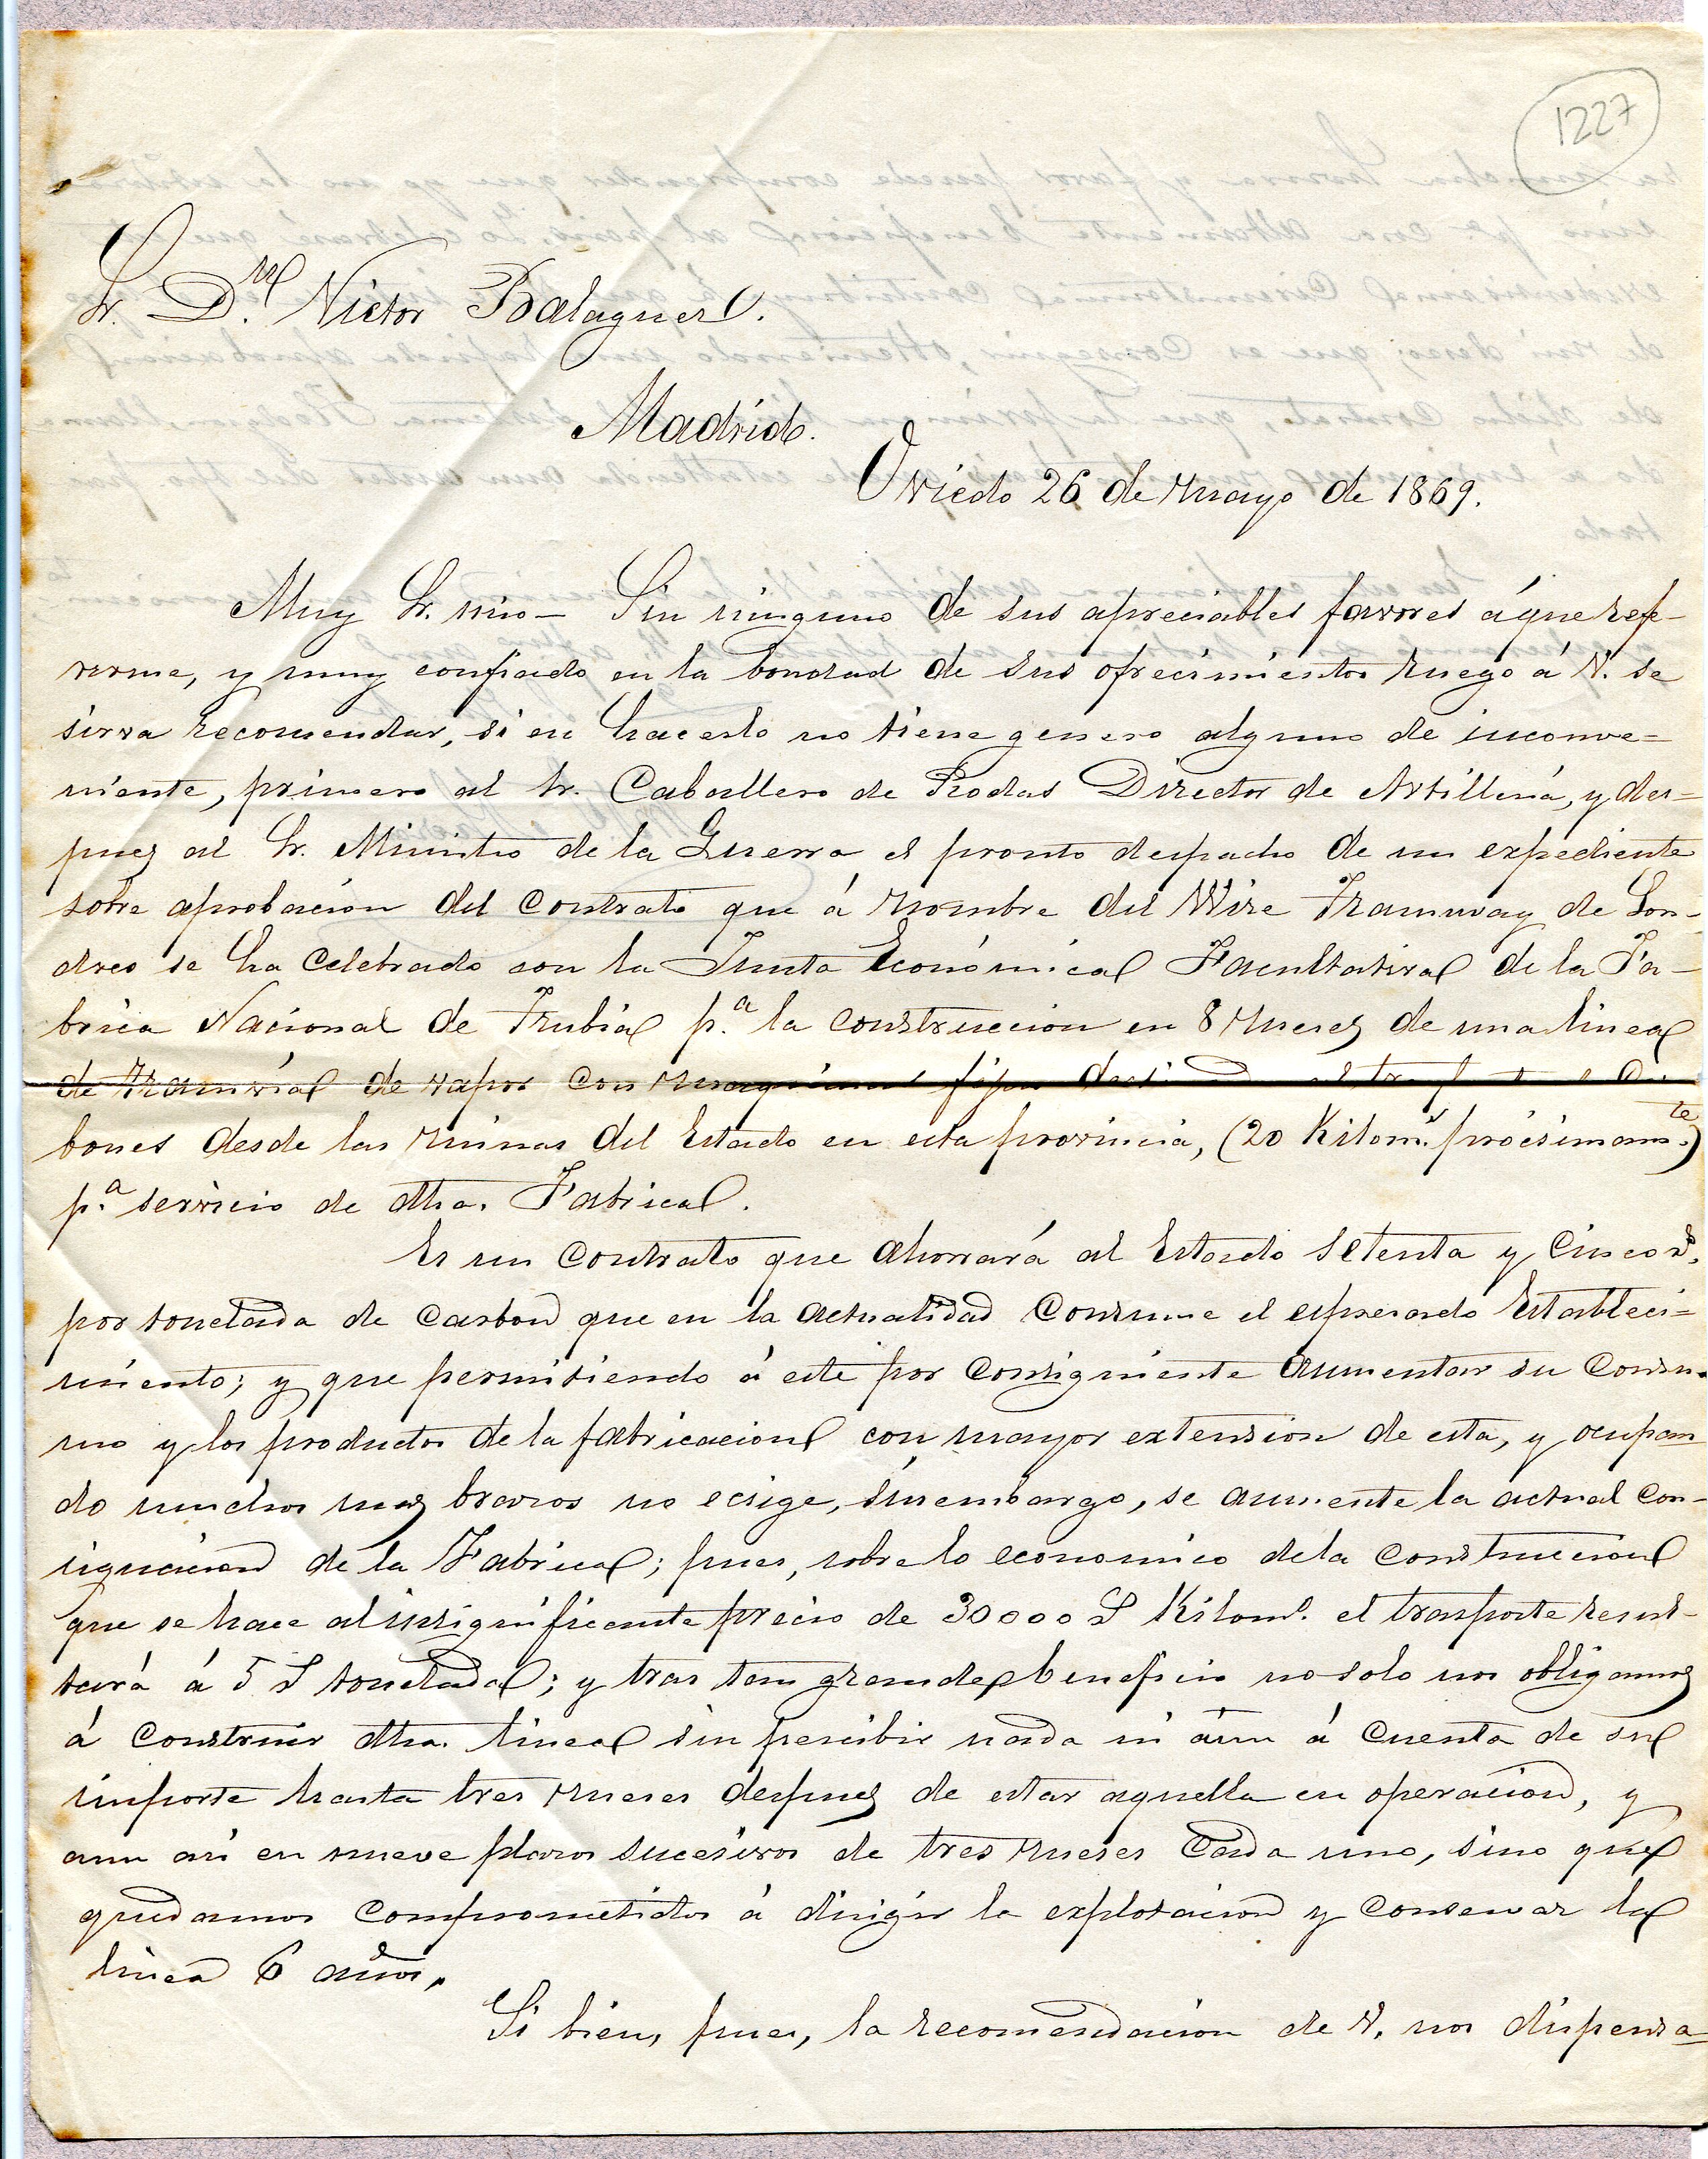 1227
Sr. Dn. Victor Balaguer.
Madrid.
Oviedo 26 de Mayo de 1869.
Muy Sr. mio – Sin ninguno de sus apreciables favores á que refe-
rirme, y muy confiado en la bondad de sus ofrecimientos ruego á V. se
sirva recomendar, si en hacerlo no tiene genero alguno de inconve-
niente, primero al Sr. Caballero de Rodas Director de Artilleria, y des-
pues al Sr. Ministro de la Guerra el pronto despacho de un expediente
sobre aprobacion del Contrato que á Nombre del Wire Tramway de Lon-
dres se ha Celebrado con la Junta Económica Facultativa de la Fa-
brica Nacional de Trubia p.a la Construccion en 8 Meses de una linea
de Tramvia de vapor con Maquinas fijas
bones desde las Minas del Estado en esta provincia, (20 Kilom.s prócsimam.te)
p.a servicio de dha. Fabrica.
Es un Contrato que Ahorrará al Estado Setenta y Cinco rs.
por tonelada de Carbon que en la Actualidad Consume el espresado Estableci-
miento; y que permitiendo á este por Consiguiente Aumentar su Consu-
mo y los productos de la fabricacion con mayor extension de esta, y ocupan
do muchos mas brazos no ecsige, sinembargo, se Aumente la actual Con-
signacion de la Fabrica; pues, sobre lo economico de la Construccion
que se hace al insignificante precio de 30000 Kilom.o el trasporte resul-
tará á 5 tonelada; y tras tan grande beneficio no solo nos obligamos
á Construir dha. linea sin percibir nada ni aun á Cuenta de su
importe hasta tres Meses despues de estar aquella en operacion, y
aun asi en nueve plazos sucesivos de tres Meses Cada uno, sino que
quedamos Comprometidos á dirigir la explotacion y Conservar la
linea 6 años.
Si bien, pues, la recomendacion de V. nos dispensa